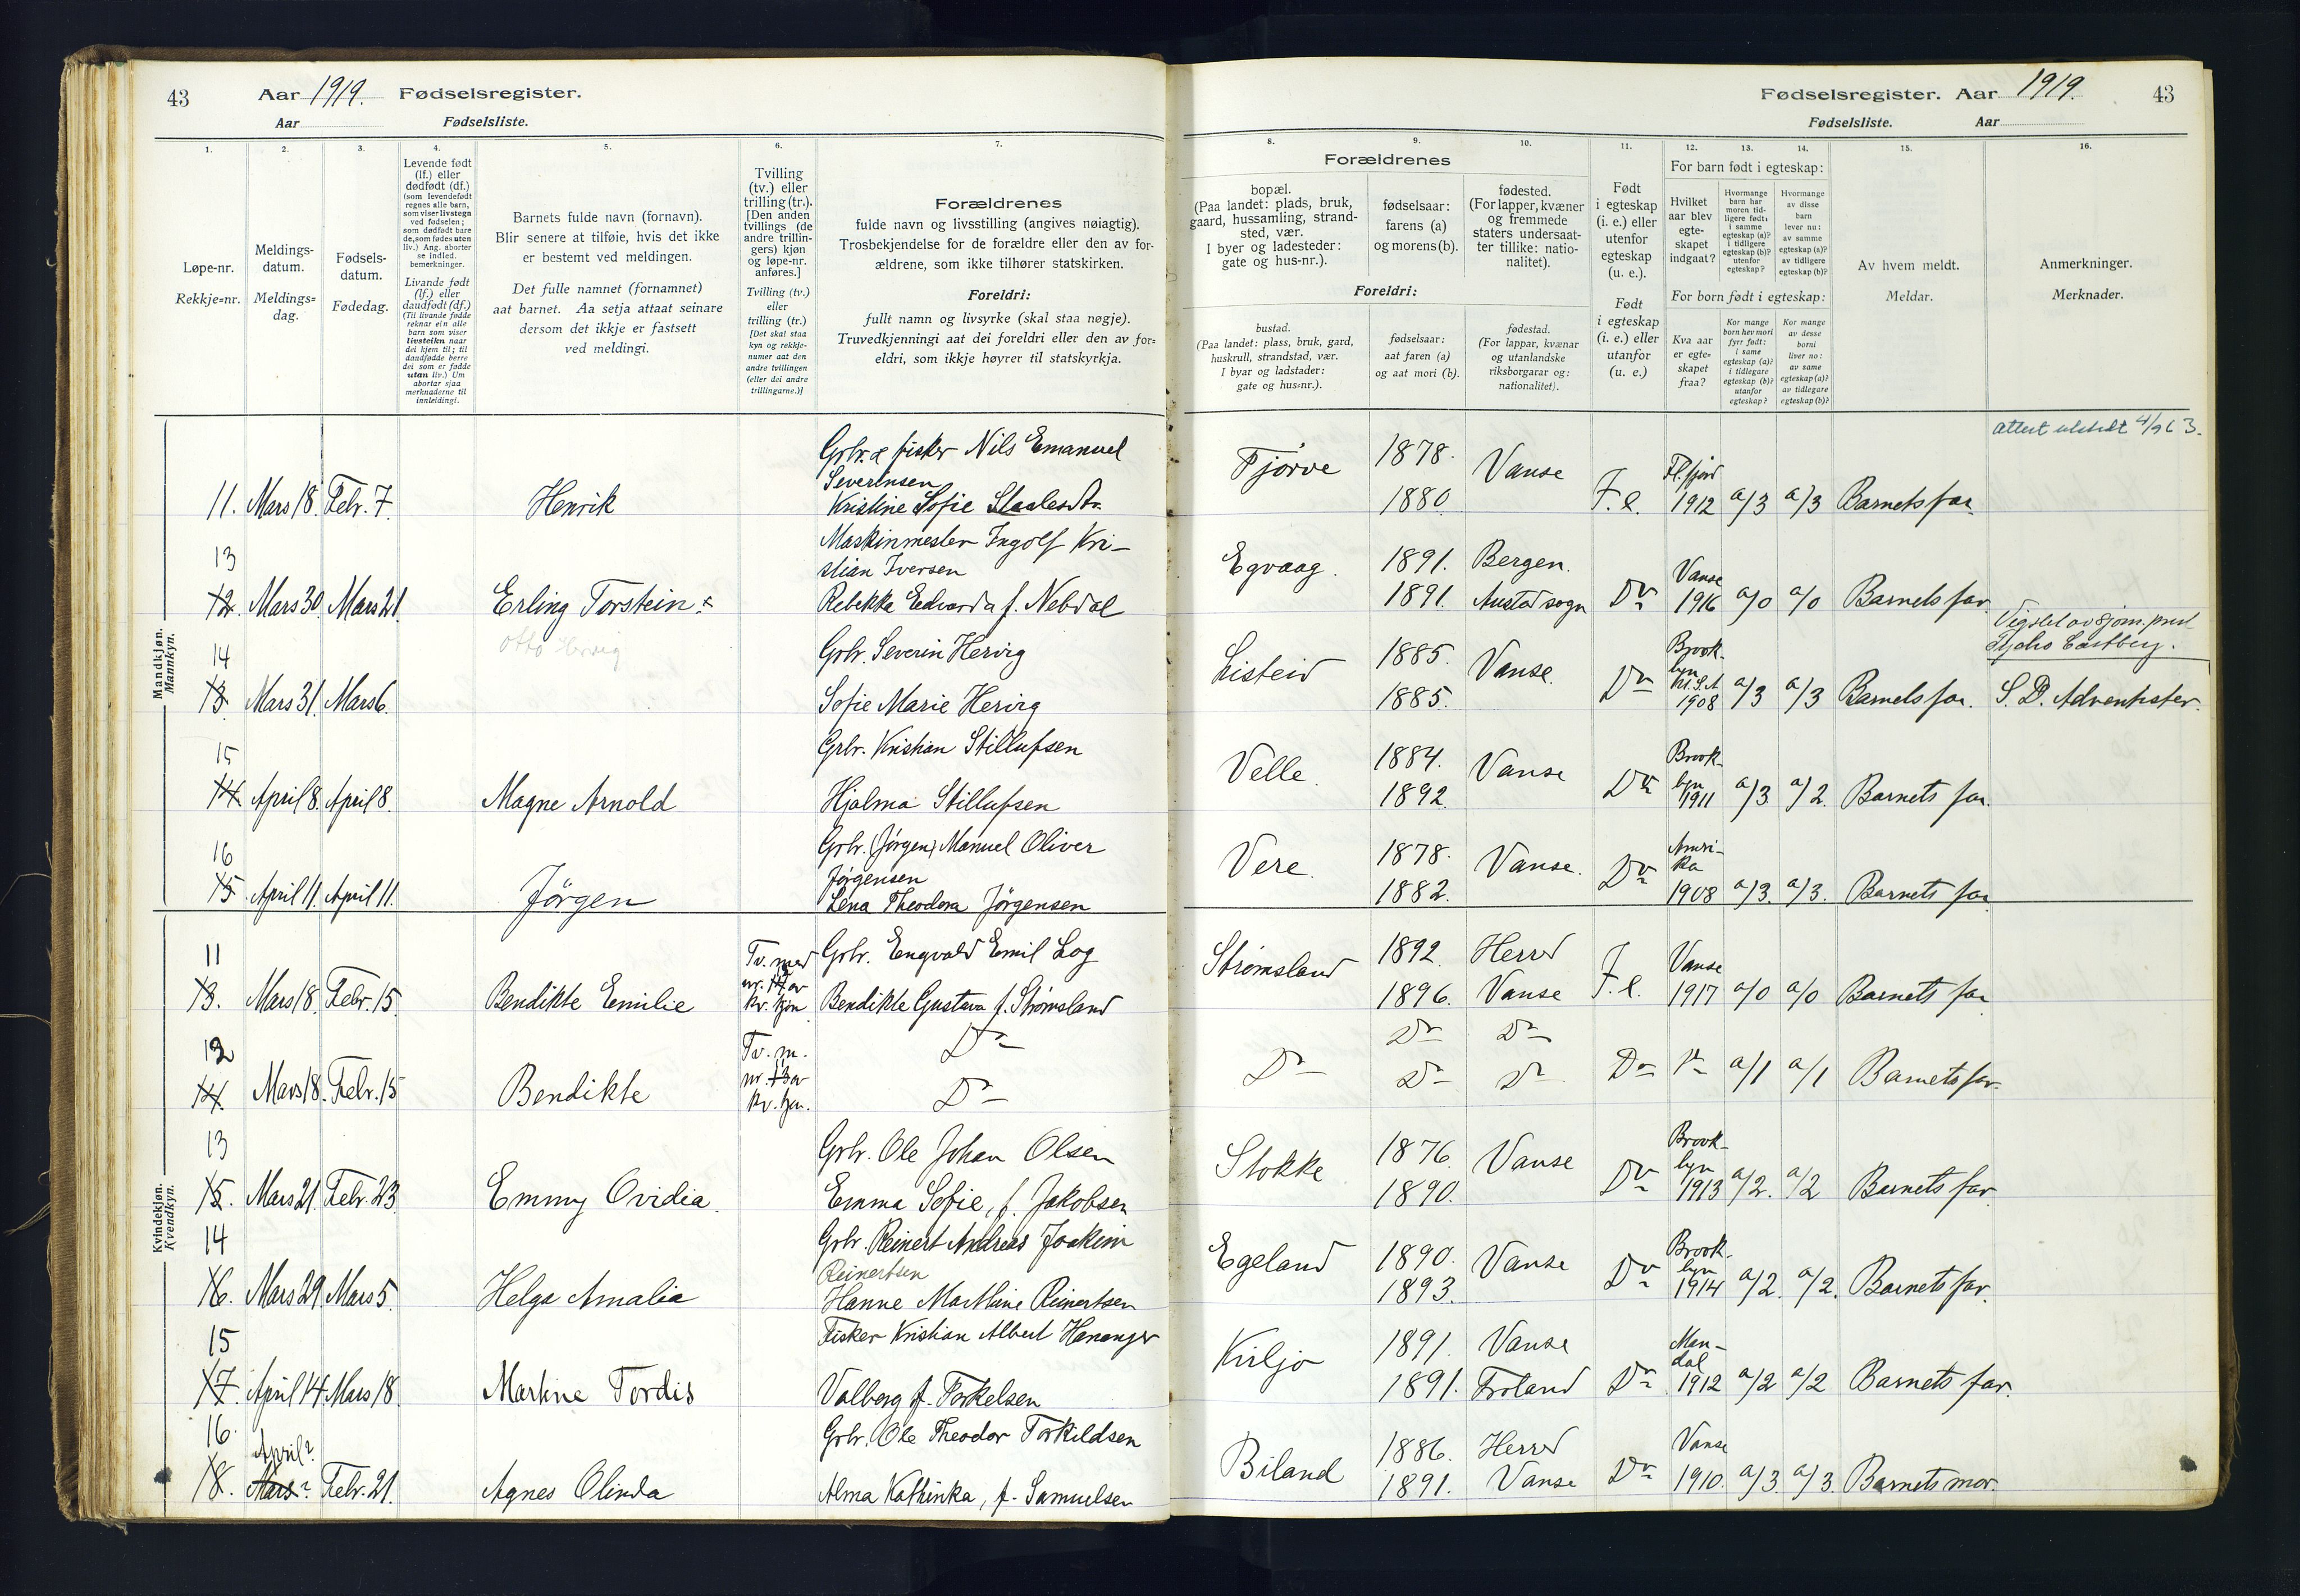 43
Aar 1919. Fødselsregister.
Aar Fødselsliste.
1. 2. 3. 4. 5. 6. 7.
Løpe-nr.
Rekkje=nr.
Meldings-
datum.
Meldings=
dag.
Fødsels-
datum.
Fødedag.
Levende født
(lf.) eller
dødfødt (df.)
(som levendefødt
regnes alle barn,
som viser livstegn
ved fødselen;
som dødfødt bare
de, som fødes uten
liv.) Ang. aborter
se indled.
bemerkninger.
Livande født
(lf.) eller
daudfødt (df.)
(Til livande fødde
reknar ein alle
barn som viser
livsteikn naar
dei kjem til; til
daudfødde berre
dei som er fødde
utan liv.) Um
abortar sjaa
merknaderne til
innleidingi.
Barnets fulde navn (fornavn).
Blir senere at tilføie, hvis det ikke
er bestemt ved meldingen.
Det fulle namnet (fornamnet)
aat barnet. Aa setja attaat seinare
dersom det ikkje er fastsett
ved meldingi.
Tvilling
(tv.) eller
trilling (tr.).
[Den anden
tvillings (de
andre trillin-
gers) kjøn
og løpe-nr.
anføres.]
Tvilling (tv.)
eller
trilling (tr.)
[Det skal staa
kyn og rekkje-
numer aat den
andre tvillingen
(eller dei andre
trillingarne.)]
Forældrenes
fulde navn og livsstilling (angives nøiagtig).
Trosbekjendelse for de forældre eller den av for-
ældrene, som ikke tilhører statskirken.
Foreldri:
fullt namn og livsyrke (skal staa nøgje).
Truvedkjenningi aat dei foreldri eller den av for=
eldri, som ikkje høyrer til statskyrkja.
Mandkjøn.
Mannkyn.
Grbr. & fisker Nils Emanuel
Severinsen
11. Mars 18. Febr. 7. Henrik Kristine Sofie Staalesdtr.
Maskinmester Ingolf Kri-
13 stian Iversen
12. Mars 30. Mars 21. Erling Torstein. Rebekka Edvarda f. Nebdal
Otto Hervig
14 Grbr. Severin Hervig
13. Mars 31. Mars 6. Sofie Marie Hervig
15 Grbr. Kristian Stillufsen
14 April 8. April 8. Magne Arnold Hjalma Stillufsen
16 Grbr. (Jørgen) Manuel Oliver
Jørgensen
15 April 11. April 11. Jørgen Lena Theodora Jørgensen
Kvindekjøn.
Kvendkyn.
11 Tv. med Grbr. Engvald Emil Log
13. Mars 18. Febr. 15. Bendikte Emilie nr. av kv. kjøn Bendikte Gustava f. Strømsland
12 Tv. m. Do
14. Mars 18. Febr. 15 Bendikte nr. 13 av kv. kjøn. Do
13 Grbr. Ole Johan Olsen
15. Mars 21. Febr. 23. Emmy Ovidia. Emma Sofie, f. Jakobsen
14 Grbr. Reinert Andreas Joakim
Reinertsen
16. Mars 29. Mars 5. Helga Amalia Hanne Mathine Reinertsen
15 Fisker Kristian Albert Hananger
17. April 14. Mars 18. Martine Tordis Valborg f. Torkelsen
16. Grbr. Ole Theodor Torkildsen
April?
18. Mars? Febr. 21. Agnes Olinda Alma Kathinka, f. Samuelsen
Fødselsregister. Aar 1919. 43
Fødselsliste. Aar
8. 9. 10. 11. 12. 13. 14. 15. 16.
Forældrenes
bopæl.
(Paa landet: plads, bruk,
gaard, hussamling, strand-
sted, vær.
I byer og ladesteder:
gate og hus-nr.).
fødselsaar:
farens (a)
og morens (b).
fødested.
(For lapper, kvæner
og fremmede
staters undersaat-
ter tillike: natio-
nalitet).
Foreldri:
bustad.
(Paa landet: plass, bruk, gard,
huskrull, strandstad, vær.
I byar og ladstader:
gate og hus=nr.).
fødselsaar:
aat faren (a)
og aat mori (b).
fødestad.
(For lappar, kvænar
og utanlandske
riksborgarar og:
nationalitet).
Født
i egteskap
(i. e.) eller
utenfor
egteskap
(u. e.).
Født
i egteskap
(i. e.) eller
utanfor
(u. e.)
For barn født i egteskap:
Hvilket
aar blev
egte-
skapet
indgaat?
Hvormange
barn har
moren tid-
ligere født:
i samme
egteskap (a)?
i tidligere
egteskap (b)?
utenfor
egteskap?
Hvormange
av disse
barn
lever nu:
av samme
egteskap (a)?
av tidligere
egteskap (b)?
For born født i egteskap:
Kva aar
er egte=
skapet
fraa?
Kor mange
born hev mori
fyrr født:
i same
egteskap (a)?
i tidlegare
egteskap (b)?
utanfor
egteskap?
Kor mange
av desse
borni
liver no:
av same
egteskap (a)?
av tidlegare
egteskap (b)?
Av hvem meldt.
Meldar.
Anmerkninger.
Merknader.
attest utstedt 4/9 63.
Tjørve 1878. Vanse Fl.fjord
1880. F. e. 1912 a/3 a/3 Barnets far.
Egvaag. 1891. Bergen. Vanse
1891. Austad sogn Do 1916 a/0 a/0 Barnets far.
Listeid 1885. Vanse. Brook-
lyn U.S.A
1885. Do 1908 a/3 a/3 Barnets far. S. D. Adventister.
Velle. 1884. Vanse Brook-
1892. Do lyn 1911 a/3 a/2. Barnets far.
Vere. 1878. Vanse. Ameri-
ka
1882. Do 1908 a/3. a/3. Barnets far
Strømsland 1892. Herred Vanse
1896. Vanse F. e. 1917 a/0 a/0 Barnets far
Do Do
Do Do Do Do Do a/1 a/1 Barnets far.
Stokke 1876. Vanse Brook-
1890. Do lyn 1913 a/2. a/2 Barnets far.
Egeland 1890. Vanse Brook-
1893. Do lyn 1914 a/2. a/2. Barnets far.
Kviljo 1891. Vanse Man-
dal
1891. Froland Do 1912 a/2 a/2 Barnets far.
Biland 1886. Herred Vanse
1891. Vanse Do 1910. a/3. a/3. Barnets mor.